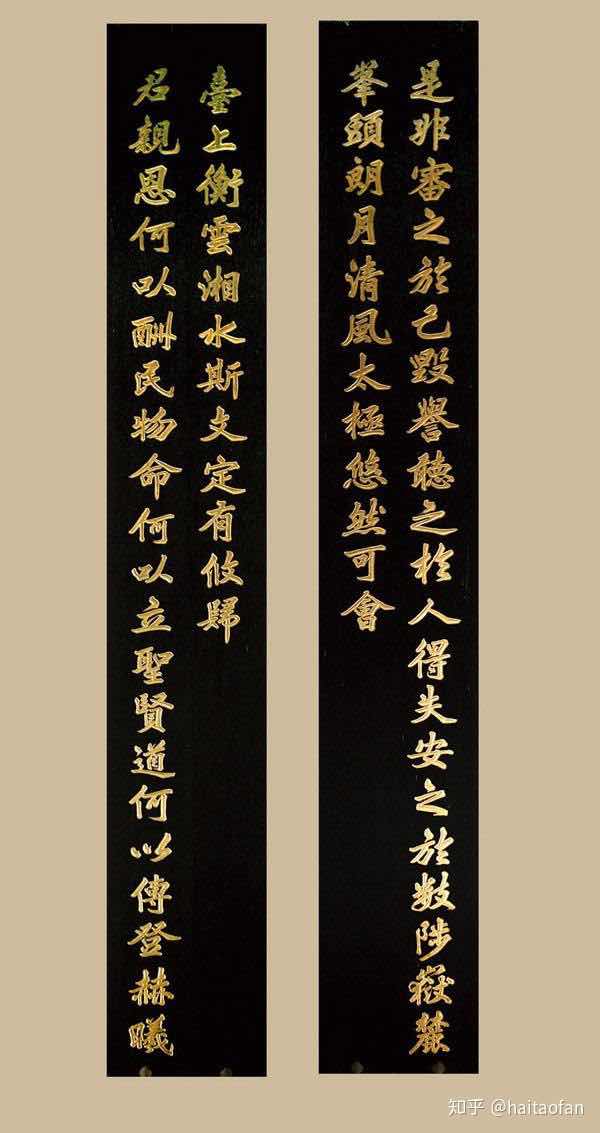 是非審之於己毀譽聽之於人得失安之於數陟嶽麓
峯頭朗月清風太極悠然可會
君親恩何以酬民物命何以立聖賢道何以傳登赫曦
臺上衡雲湘水斯文定有攸歸
知乎 @haitaofan